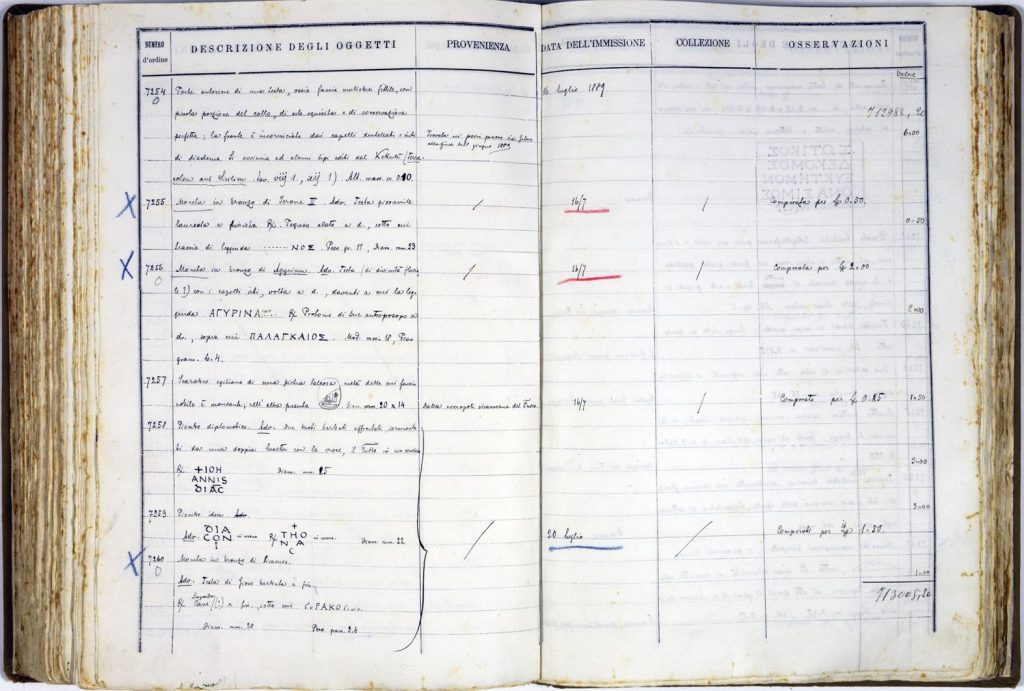 NUMERO d'ordine
DESCRIZIONE DEGLI OGGETTI
PROVENIENZA
DATA DELL'IMMISSIONE
COLLEZIONE
OSSERVAZIONI
Valore
7254
0
Parte anteriore di una testa, ossia faccia muliebre fittile, con
piccola porzione del collo, di arte squisita e di conservazione
perfetta; la fronte è incorniciata dai capelli
di diadema. Si avvicina ad alcuni tipi editi dal Kekulé (Terra
VIIJ 1, XIJ 1) Alt. mass. m. 0.10.
giugno 1889
16 luglio 1889
712988, 20
6=00
7255
Moneta in bronzo di Ierone II. Adv. Testa giovanile
laureata a sinistra Rx. Pegaso alato a d., sotto cui
traccie di leggenda ........ ΝΟΣ. Peso gr. 11. Diam. mm. 23
/
16/7
/
Comperata per £ 0.50.
0=50
7256
0
Moneta in bronzo di Agyrium. Adv. Testa (di divinità
le?) con i capelli irti, volta a d., davanti a cui la leg
genda ΑΓΥΡΙΝΑ Rx Protome di bue antiprosopo a
d., sopra cui ΠΑΛΑΓΚΑΙΟΣ. Mod. mm. 18, Peso
gram. 6.4.
/
16/7
/
Comperata per £ 2.00
2=00
7257
Scarabeo egiziano di una pietra calcarea metà della cui faccia
nobile è mancante; nell'altra presenta diam. mm. 20 x 14
Dalla necropoli siracusana del Fusco
16/7
/
Comperato per £ 0.15
1=50
7258
Piombo diplomatico. Adv. due busti barbati affrontati, sormonta
ti da una doppia croce, il tutto in un cerchio
Rx +IOH
ANNIS
DIAC
Diam. mm. 25
3=00
7259
Piombo idem. Adv.
Adv. DIA
CON
I
Rx +
THO
N A
C
Diam. mm. 22
/
20 luglio
/
Comperati per £ 1=50
3=00
7260
0
Moneta in bronzo di Siracusa.
Adv. Testa di Giove barbata a sin.
Rx a sin., sotto cui ΣΥΡΑΚΟ
Diam. mm. 20 Peso gram. 3.6
1=00
713005,20